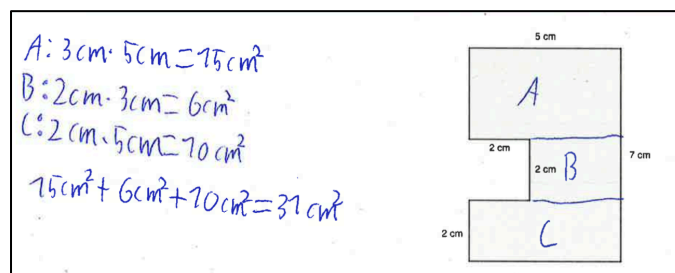 A: 3cm · 5cm = 15cm²
B: 2cm · 3cm = 6cm²
C: 2cm · 5cm = 10cm²
15cm² + 6cm² + 10cm² = 31cm²
5 cm
A
2 cm
2 cm
B
7 cm
2 cm
C